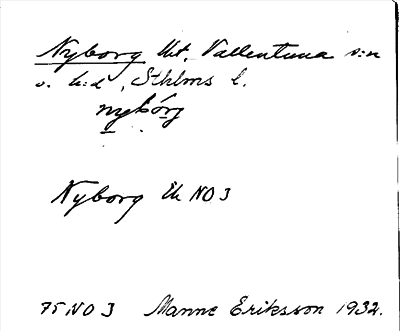 Nyborg lht, Vallentuna s:n
o. h:d, Sthlms l.
nybórg
Nyborg Ek NO 3
75 NO 3 Manne Eriksson 1932.